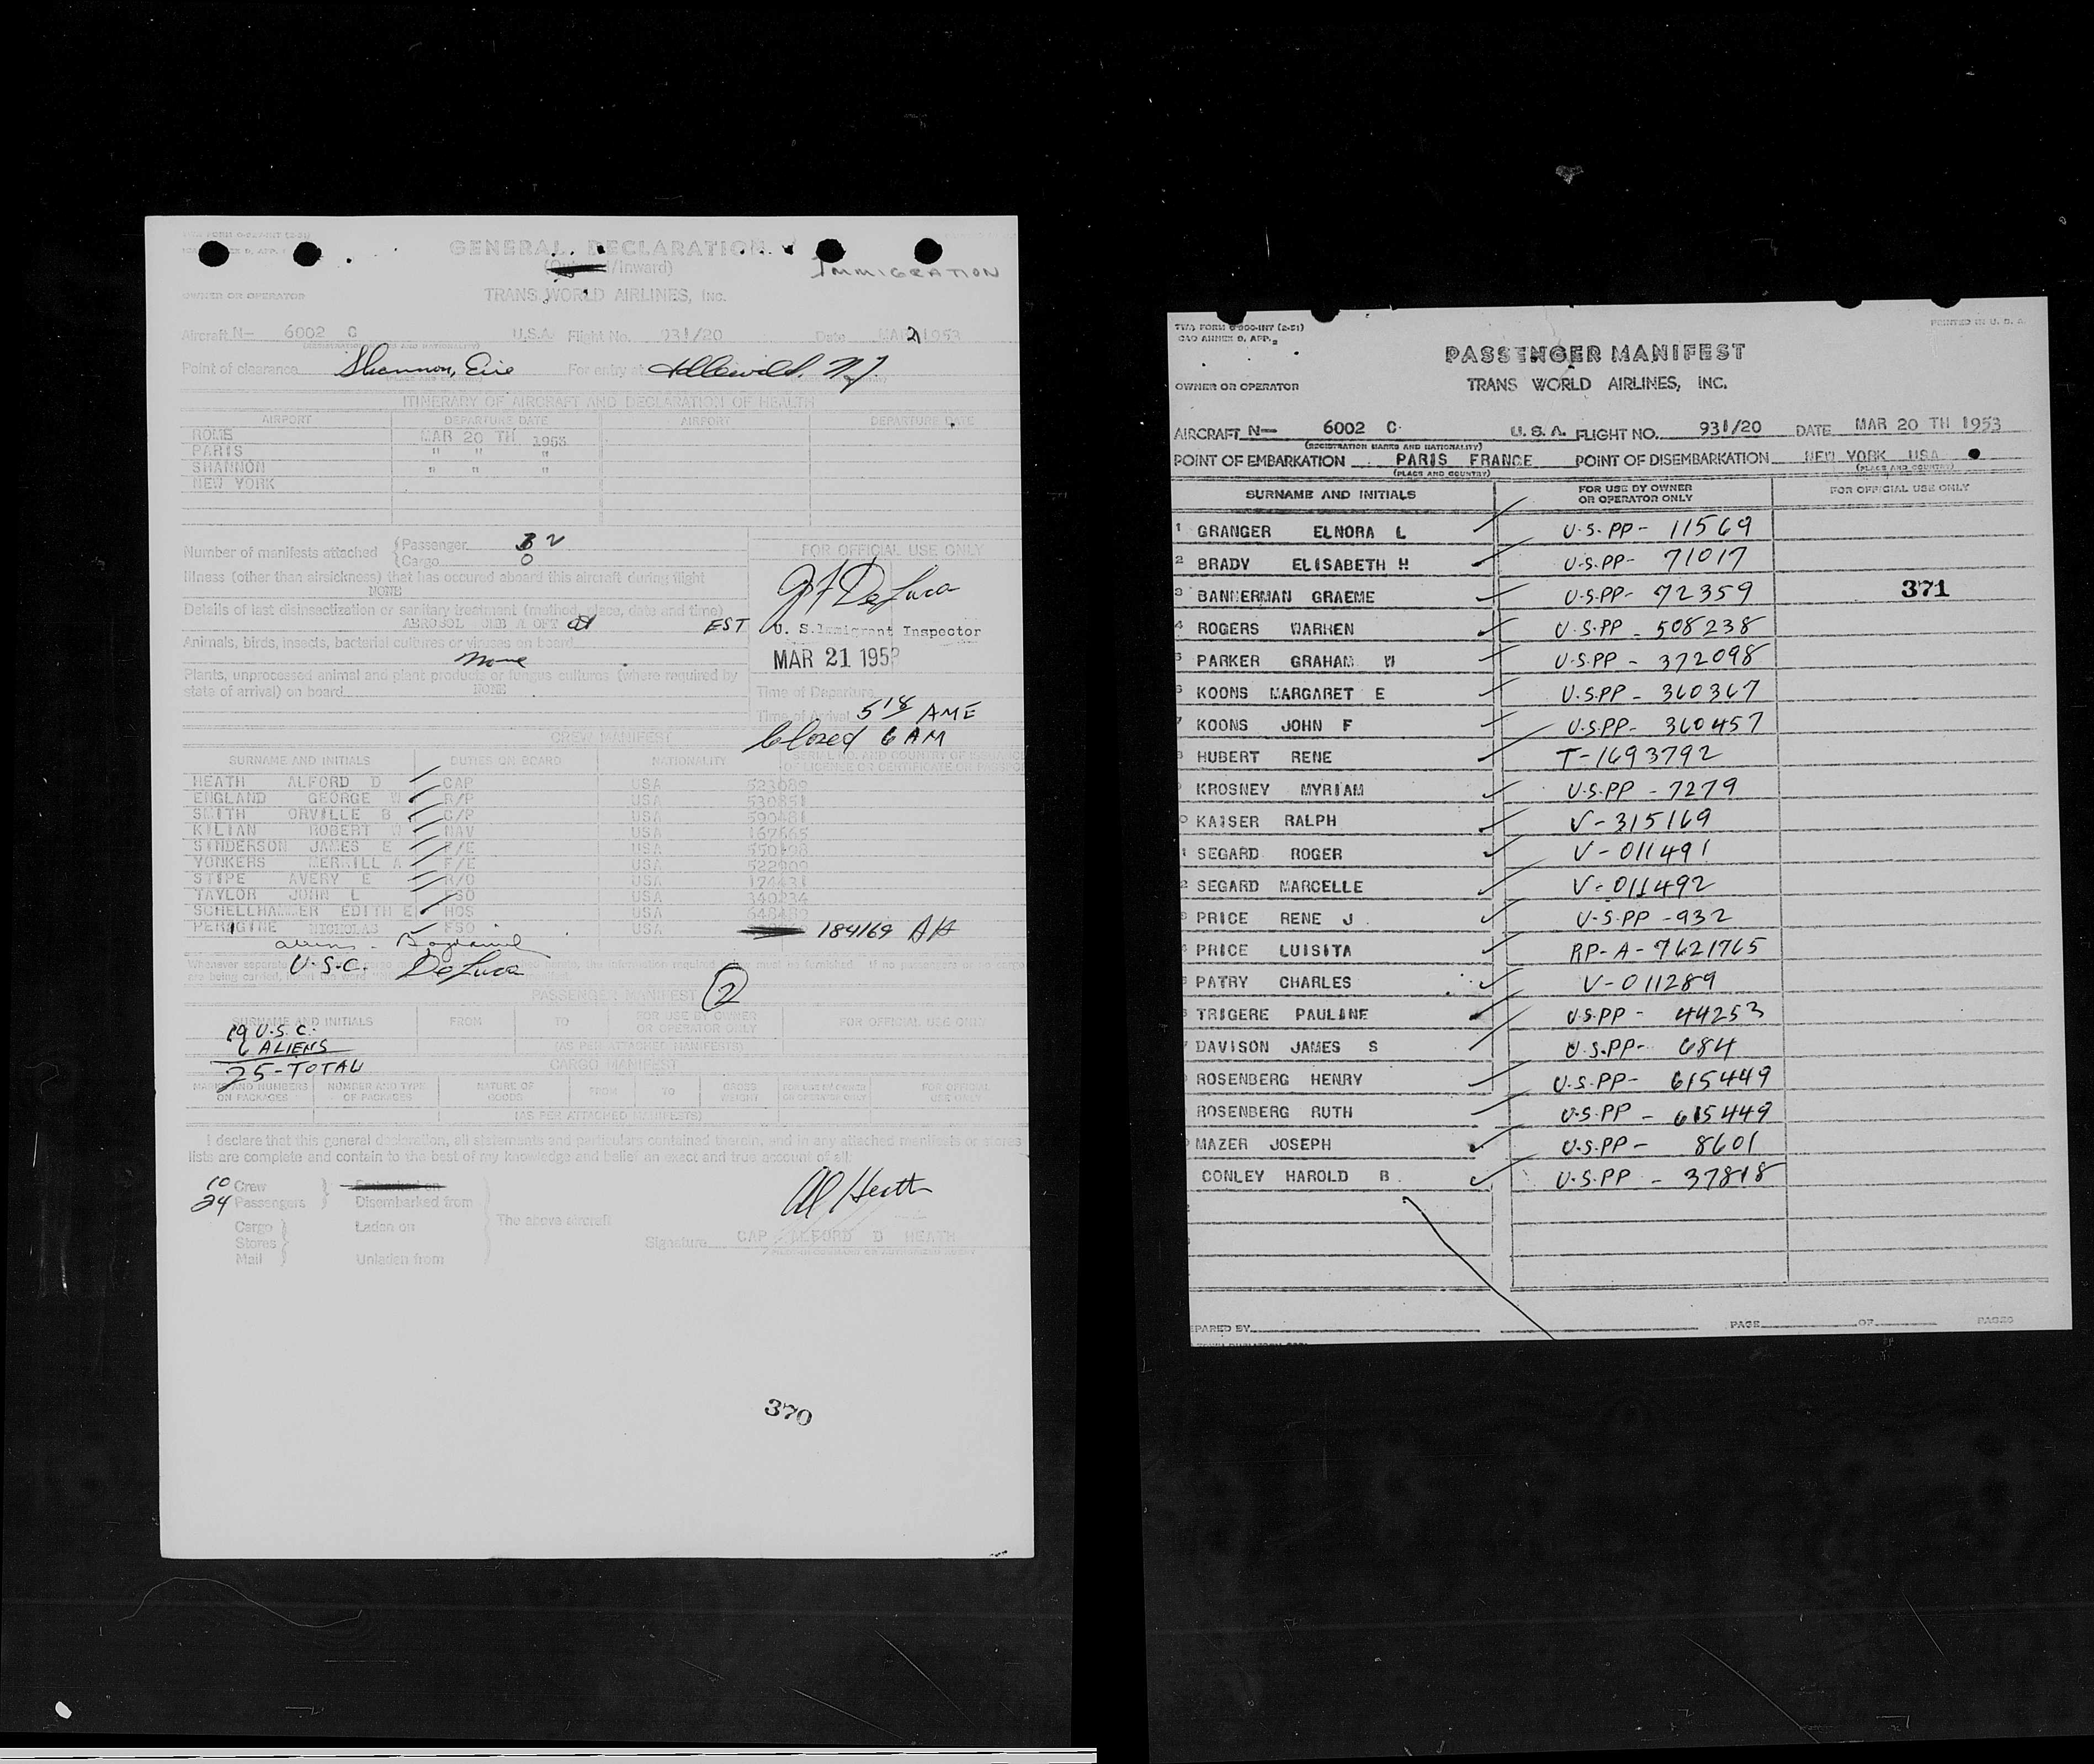 TWA FORM
GENERAL DECLARATION
(/Inward)
IMMIGRATION
OWNER OR OPERATOR
TRANS WORLD AIRLINES, INC.
Aircraft N- 6002 C U.S.A. Flight No. 931/20 Date MAR 21 1953
(REGISTRATION MARKS AND NATIONALITY)
Point of clearance Shannon, Eire For entry at Idlewild, N.Y.
(PLACE AND COUNTRY)
ITINERARY OF AIRCRAFT AND DECLARATION OF HEALTH
AIRPORT DEPARTURE DATE AIRPORT DEPARTURE DATE
ROME MAR 20 TH 1953
PARIS " " "
SHANNON " " "
NEW YORK
Number of manifests attached {Passenger 2
{Cargo 0
FOR OFFICIAL USE ONLY
Illness (other than airsickness) that has occured aboard this aircraft during flight
NONE
Details of last disinsectization or sanitary treatment (method, place, date and time)
EST
Animals, birds, insects, bacterial cultures or viruses on board
None
Plants, unprocessed animal and plant products or fungus cultures (where required by
state of arrival) on board NONE
J F DeLuca
U. S. Immigrant Inspector
MAR 21 1953
Time of Departure
Time of Arrival 5 18 AME
Closed 6 AM
CREW MANIFEST
SURNAME AND INITIALS DUTIES ON BOARD NATIONALITY SERIAL NO. AND COUNTRY OF
OF LICENCE OR CERTIFICATE OR
HEATH ALFORD D CAP USA 523089
ENGLAND GEORGE W R/P USA 530851
SMITH ORVILLE B C/P USA 590481
KILIAN ROBERT W NAV USA 167665
SYNDERSON JAMES E F/E USA 550198
YONKERS MERRILL A F/E USA 522900
STIPE AVERY E R/O USA 174431
TAYLOR JOHN L FSO USA 340234
SCHELLHAMMER EDITH E HOS USA 648480
PEREGYNE NICHOLAS FSO USA 184169
aliens -
U.S.C. DeLuca
PASSENGER MANIFEST 2
SURNAME AND INITIALS FROM TO FOR USE BY OWNER
OR OPERATOR ONLY FOR OFFICIAL USE ONLY
(AS PER ATTACHED MANIFESTS)
19 U.S.C.
6 ALIENS
25 - TOTAL
CARGO MANIFEST
MARKS AND NUMBERS
ON PACKAGES NUMBER AND TYPE
OF PACKAGES NATURE OF
GOODS FROM TO GROSS
WEIGHT FOR USE BY OWNER
OR OPERATOR ONLY FOR OFFICIAL
USE ONLY
(AS PER ATTACHED MANIFESTS)
I declare that this general declaration, all statements and particulars contained therein, and in any attached manifests or stores
lists are complete and contain to the best of my knowledge and belief an exact and true account of all:
10 Crew
24 Passengers Disembarked from
Cargo Laden on The above aircraft
Stores
Mail Unladen from
Al Heath
Signature CAP ALFORD D HEATH
370
TWA FORM O-900-INT (2-51)
ICAO ANNEX 9, APP.
PRINTED IN U. S. A.
PASSENGER MANIFEST
OWNER OR OPERATOR
TRANS WORLD AIRLINES, INC.
AIRCRAFT N- 6002 C U. S. A. FLIGHT NO. 931/20 DATE MAR 20 TH 1953
(REGISTRATION MARKS AND NATIONALITY)
POINT OF EMBARKATION PARIS FRANCE POINT OF DISEMBARKATION NEW YORK USA
(PLACE AND COUNTRY) (PLACE AND COUNTRY)
SURNAME AND INITIALS FOR USE BY OWNER
OR OPERATOR ONLY FOR OFFICIAL USE ONLY
1 GRANGER ELNORA L U.S.PP- 11569
2 BRADY ELISABETH H U.S.PP- 71017
3 BANNERMAN GRAEME U.S.PP- 72359 371
4 ROGERS WARREN U.S.PP - 508238
5 PARKER GRAHAM W U.S.PP - 372098
6 KOONS MARGARET E U.S.PP - 360367
7 KOONS JOHN F U.S.PP- 360457
8 HUBERT RENE T-1693792
KROSNEY MYRIAM U.S.PP - 7279
0 KAISER RALPH V-315169
1 SEGARD ROGER V-011491
2 SEGARD MARCELLE V-011492
3 PRICE RENE J U.S.PP - 932
PRICE LUISITA RP-A-7621765
PATRY CHARLES V-011289
TRIGERE PAULINE U.S.PP - 44253
7 DAVISON JAMES S U.S.PP- 684
ROSENBERG HENRY U.S.PP- 615449
ROSENBERG RUTH U.S.PP - 615449
MAZER JOSEPH U.S.PP - 8601
CONLEY HAROLD B U.S.PP - 37818
EPARED BY PAGE OF PAGES